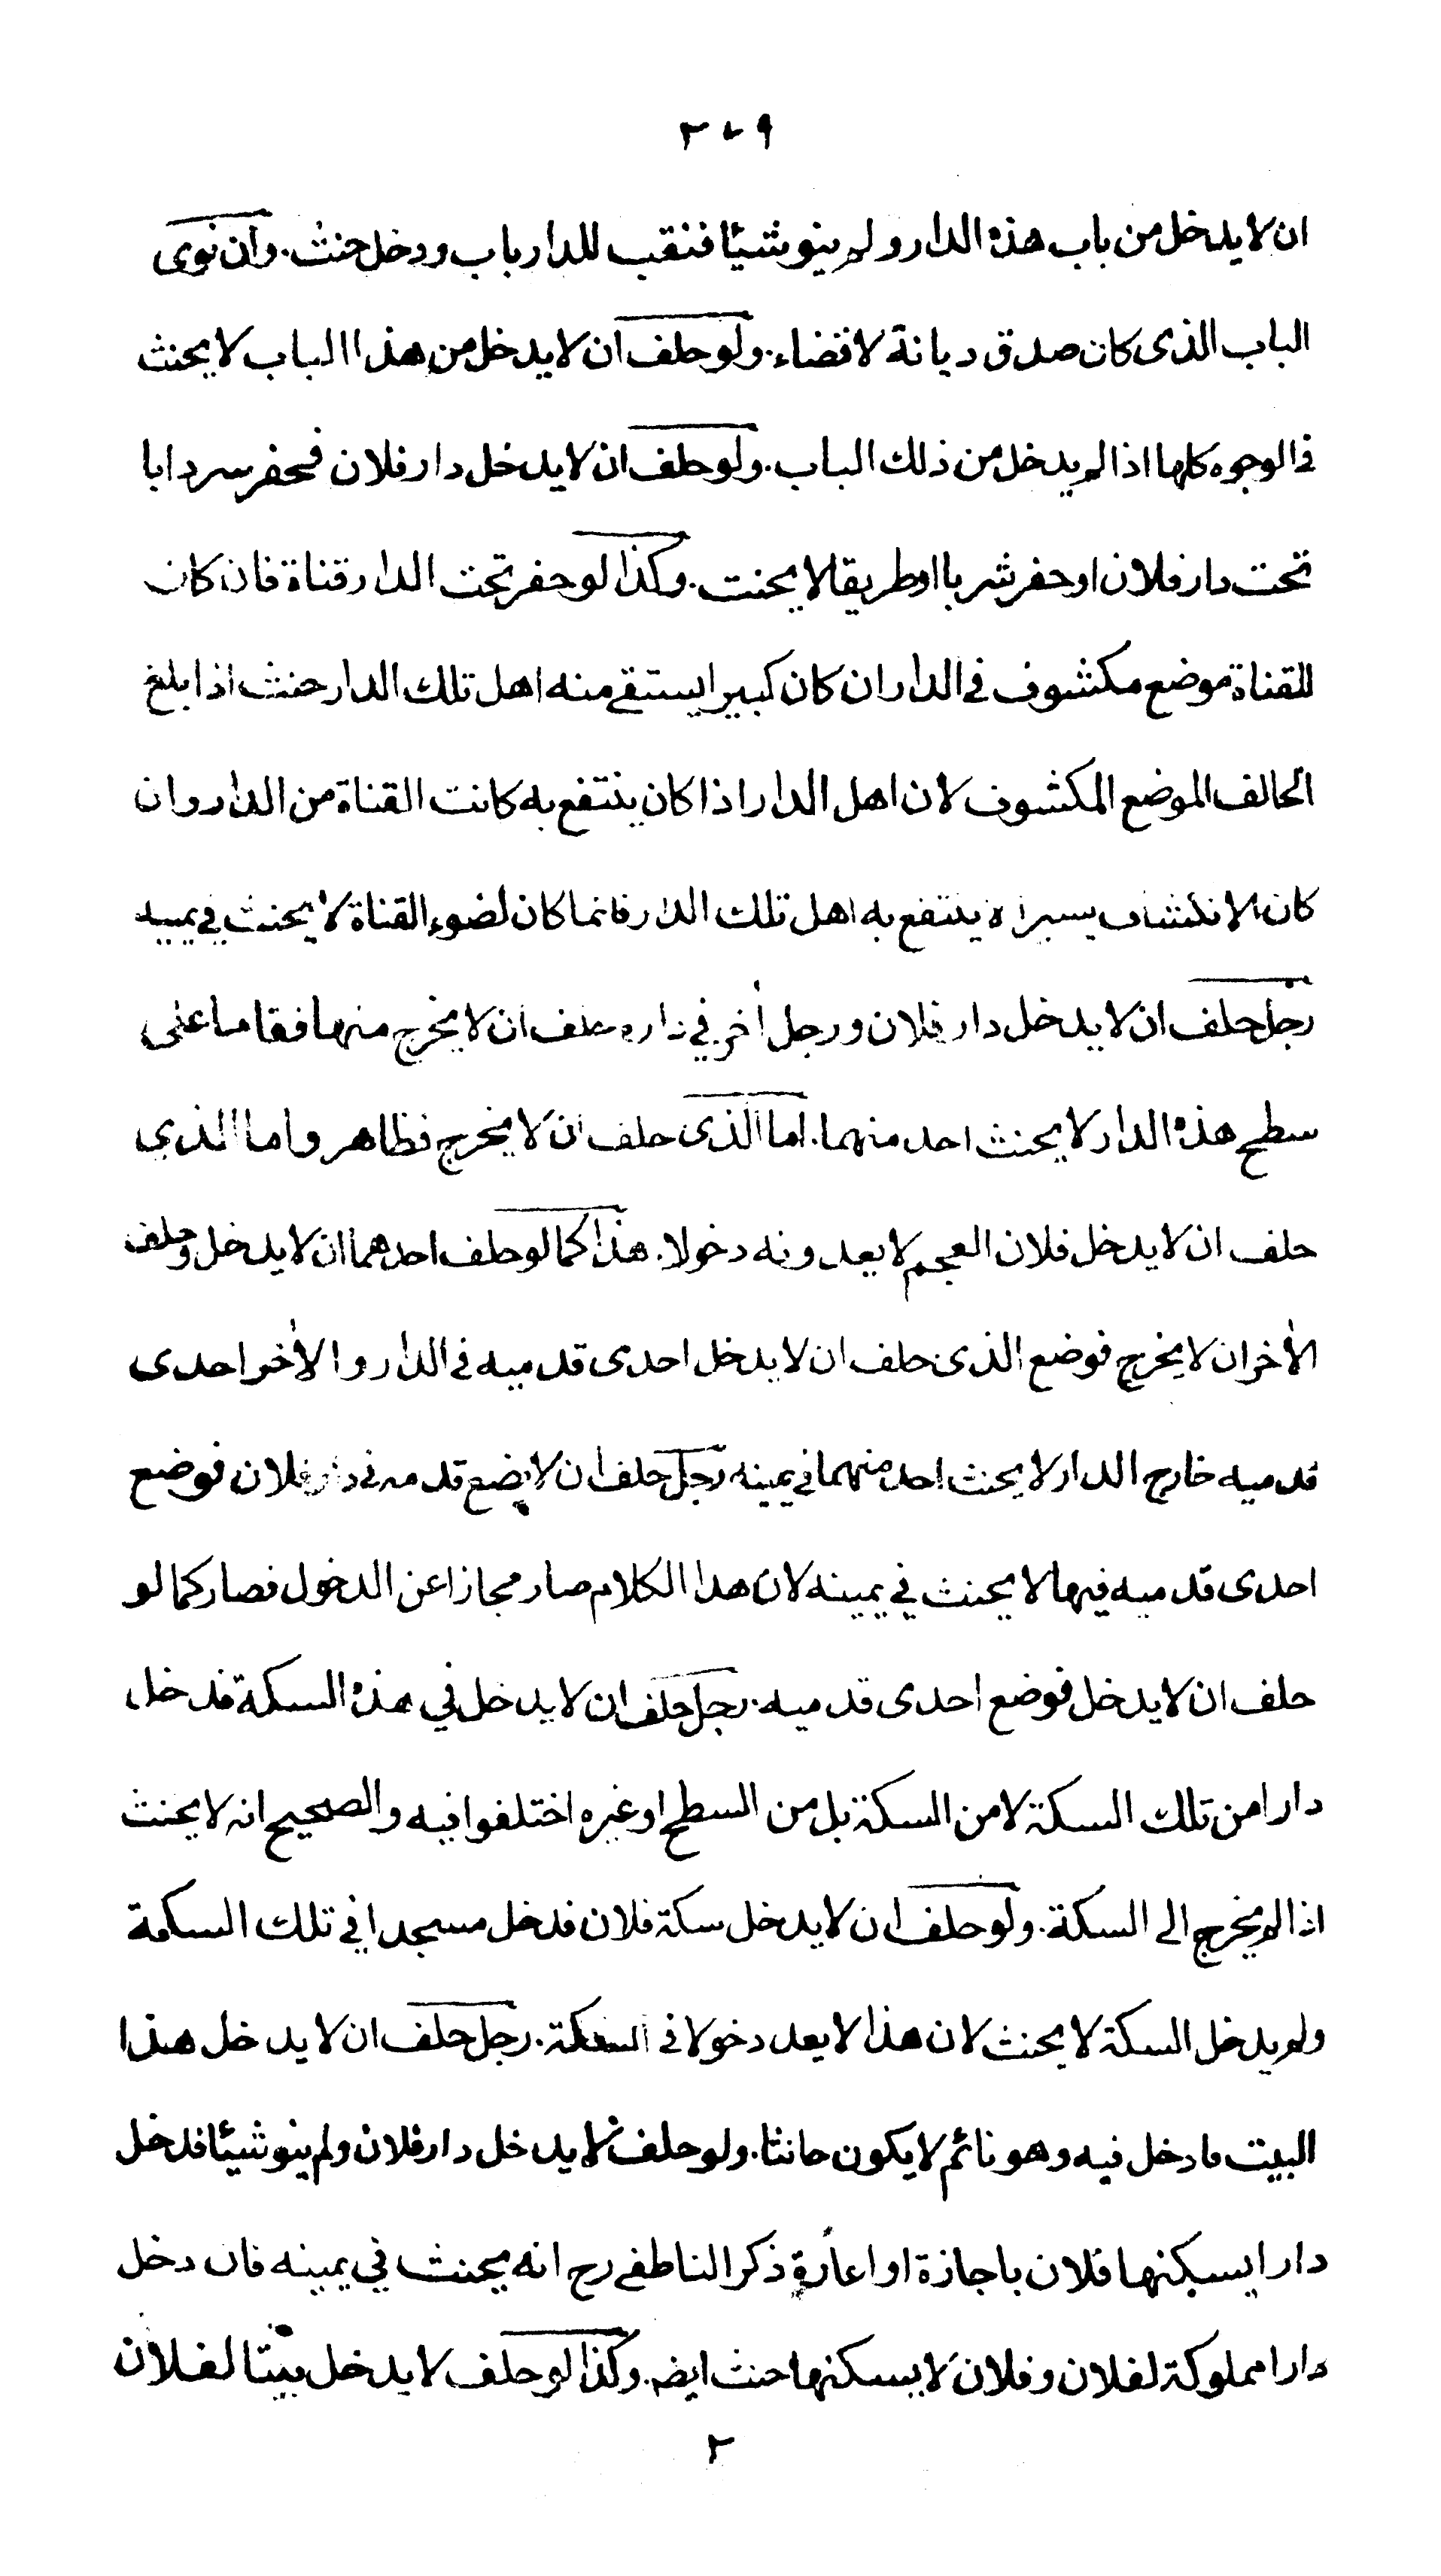 ٣٠٩
ان لا يدخل من باب هذه الدار ولم ينو شيئا فنقب للدار باب ودخل حنث. وان نوى
الباب الذى كان صدق ديانة لا قضاء. ولو حلف ان لا يدخل من هذا الباب لا يحنث
فى الوجوه كلها اذا لم يدخل من ذلك الباب. ولو حلف ان لا يدخل دار فلان فحفر سردابا
تحت دار فلان او حفر شربا او طريقا لا يحنث. وكذا لو حفر تحت الدار قناة فان كان
للقناة موضع مكشوف فى الدار ان كان كبيرا يستقى منه اهل تلك الدار حنث اذا بلغ
الحالف الموضع المكشوف لان اهل الدار اذا كان ينتفع به كانت القناة من الدار وان
كان الانكشاف يسيرا لا ينتفع به اهل تلك الدار فانما كان لضوء القناة لا يحنث في يمينه
رجل حلف ان لا يدخل دار فلان ورجل أخر في داره حلف ان لا يخرج منها فقاما على
سطح هذه الدار لا يحنث احد منهما. اما الذى حلف ان لا يخرج فظاهر واما الذي
حلف ان لا يدخل فلان العجم لا يعدونه دخولا. هذا كما لو حلف احدهما ان لا يدخل وحلف
الأخر ان لا يخرج فوضع الذى حلف ان لا يدخل احدى قدميه فى الدار والأخر احدى
قدميه خارج الدار لا يحنث احد منهما في يمينه رجل حلف ان لا يضع قدمه فى دار فلان فوضع
احدى قدميه فيها لا يحنث في يمينه لان هذا الكلام صار مجازا عن الدخول فصار كما لو
حلف ان لا يدخل فوضع احدى قدميه. رجل حلف ان لا يدخل في هذه السكة فدخل
دارا من تلك السكة لا من السكة بل من السطح او غيره اختلفوا فيه والصحيح انه لا يحنث
اذا لم يخرج الى السكة. ولو حلف ان لا يدخل سكة فلان فدخل مسجدا في تلك السكة
ولم يدخل السكة لا يحنث لان هذا لا يعد دخولا فى السكة. رجل حلف ان لا يدخل هذا
البيت فادخل فيه وهو نائم لا يكون حانثا. ولو حلف لا يدخل دار فلان ولم ينو شيئا فدخل
دارا يسكنها فلان باجازة او اعارة ذكر الناطفى رح انه يحنث في يمينه فان دخل
دارا مملوكة لفلان وفلان لا يسكنها حنث ايضم. وكذا لو حلف لا يدخل بيتا لفلان
٢